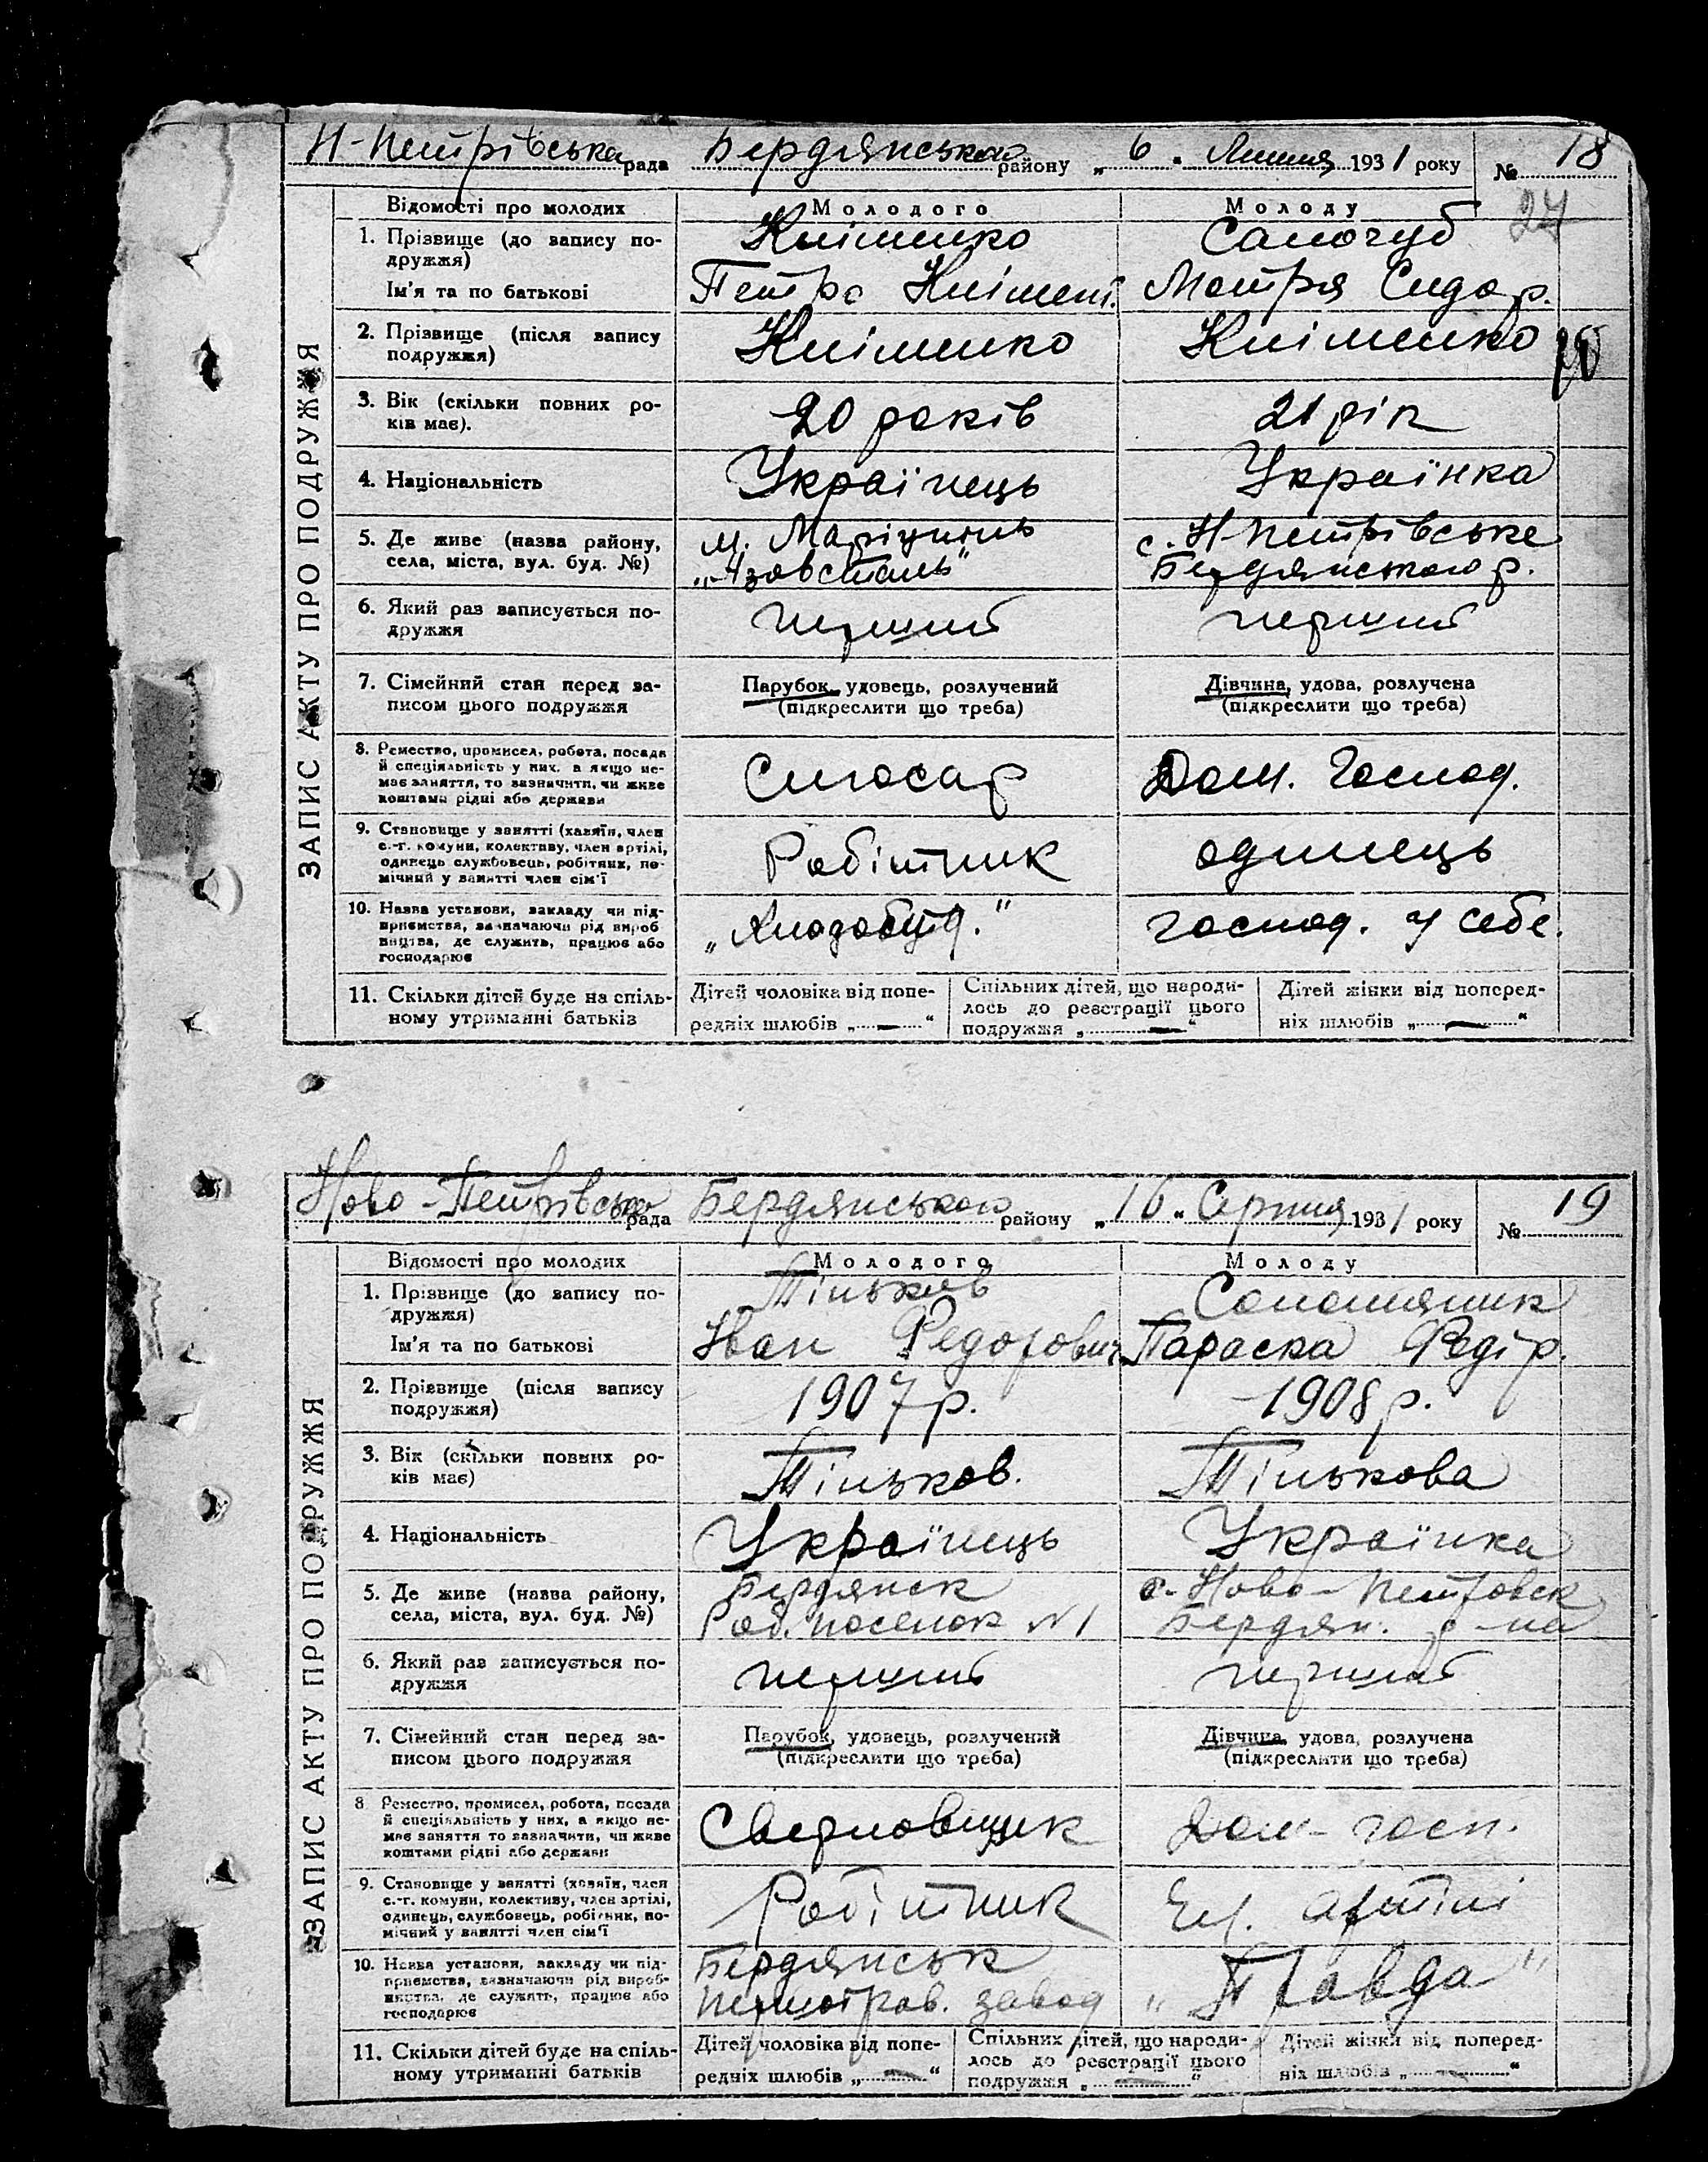 Н-Петрівська рада Бердянського району „ 6 " Липня 1931 року № 18
27
ЗАПИС АКТУ ПРО ПОДРУЖЖЯ
Відомості про молодих Молодого Молоду
1. Прізвище (до запису по- Кліменко Самочуб
дружжя)
Ім'я та по батькові Петро Клімент. Мотря Сидор.
2. Прізвище (після запису Кліменко Кліменко
подружжя)
3. Вік (скільки повних ро- 20 років 21 рік
ків має).
4. Національність Українець Українка
5. Де живе (назва району, м. Маріупіль с. Н-Петрівське
села, міста, вул. буд. №) „Азовсталь" Бердянського р.
6. Який раз записується по- перший перший
дружжя
7. Сімейний стан перед за- Парубок, удовець, розлучений Дівчина, удова, розлучена
писом цього подружжя (підкреслити що треба) (підкреслити що треба)
8. Ремество, промисел, робота, посада
й спеціяльність у них, а якщо не- Слюсар Дом. Господ.
має заняття, то зазначити, чи живе
коштами рідні або держави
9. Становище у занятті (хазяїн, член
с.-г. комуни, колективу, член артілі, Робітник одинець
одинець службовець, робітник, по-
мічний у занятті член сім'ї
10. Назва установи, закладу чи під-
приємства, зазначаючи рід вироб господ. у себе.
ництва, де служить, працює або
господарює
11. Скільки дітей буде на спіль- Дітей чоловіка від попе- Спільних дітей, що народи- Дітей жінки від поперед-
ному утриманні батьків редніх шлюбів „ — " лось до реєстрації цього ніх шлюбів „ — "
подружжя „ — "
Ново-Петрівська рада Бердянського району „ 16 " Серпня 1931 року № 19
ЗАПИС АКТУ ПРО ПОДРУЖЖЯ
Відомості про молодих Молодого Молоду
1. Прізвище (до запису по- Тіньков Соломяник
дружжя)
Ім'я та по батькові Іван Федорович Параска Федір.
2. Прізвище (після запису 1907 р. 1908 р.
подружжя)
3. Вік (скільки повних ро- Тіньков. Тінькова
ків має)
4. Національність Українець Українка
5. Де живе (назва району, Бердянск с. Ново-Петровск
села, міста, вул. буд. №) Роб. поселок № 1 Бердян. р-на
6. Який раз записується по- перший перший
дружжя
7. Сімейний стан перед за- Парубок, удовець, розлучений Дівчина, удова, розлучена
писом цього подружжя (підкреслити що треба) (підкреслити що треба)
8 Ремество, промисел, робота, посада
й спеціяльність у них, а якщо не- Сверловщик Дом-госп.
має заняття то зазначити, чи живе
коштами рідні або держави
9. Становище у занятті (хазяїн, член
с.-г. комуни, колективу, член артілі, Робітник артілі
одинець, службовець, робітник, по-
мічний у занятті член сім'ї
10. Назва установи, закладу чи під- Бердянськ
приємства, зазначаючи рід вироб- „Правда"
ництва, де служить, працює або Першотрав. завод
господарює
11. Скільки дітей буде на спіль- Дітей чоловіка від попе- Спільних дітей, що народи- Дітей жінки від поперед-
ному утриманні батьків редніх шлюбів „ — " лось до реєстрації цього ніх шлюбів „ — "
подружжя „ — "